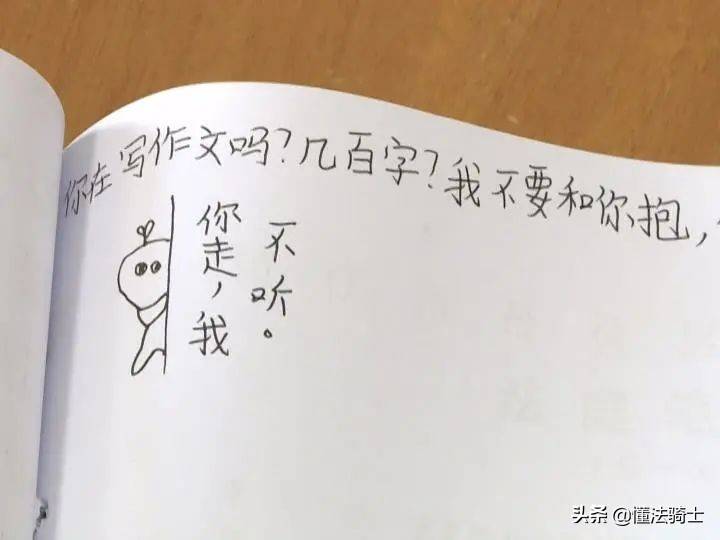 你在写作文吗?几百字?我不要和你抱,
你走,我
不听。
头条 @懂法骑士